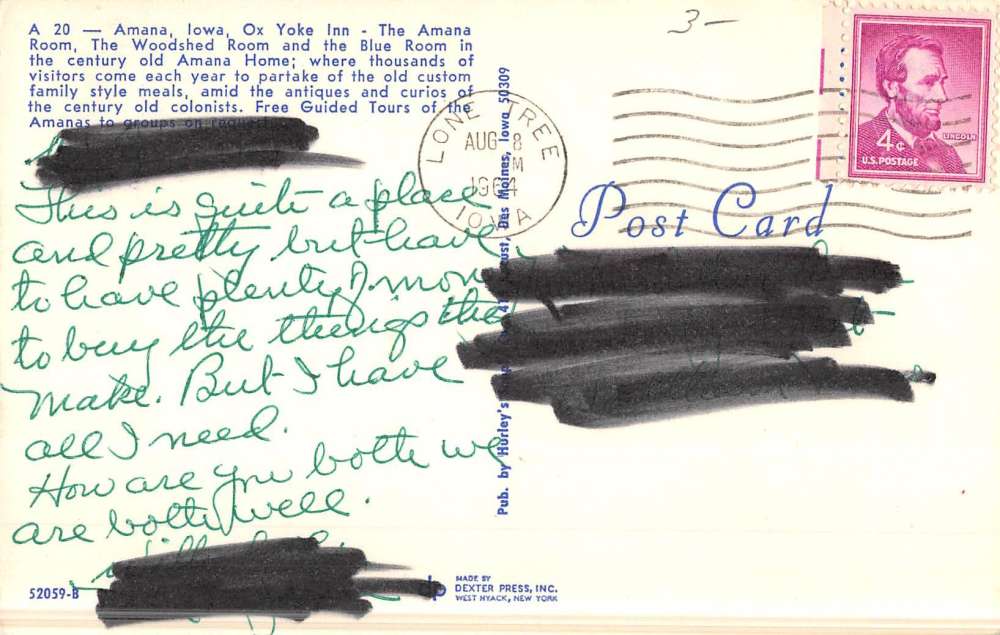 A 20 — Amana, Iowa, Ox Yoke Inn - The Amana
Room, The Woodshed Room and the Blue Room in
the century old Amana Home; where thousands of
visitors come each year to partake of the old custom
family style meals, amid the antiques and curios of
the century old colonists. Free Guided Tours of the
Amanas to groups on request
This is quite a place
and pretty but have
to have plenty of mon
to buy the things the
make. But I have
all I need.
How are you both we
are both well.
52059-B
Pub. by Hurley's Des Moines, Iowa 50309
MADE BY
DEXTER PRESS, INC.
WEST NYACK, NEW YORK
LONE TREE
AUG 8
M
4
IOWA
3-
Post Card
LINCOLN
4¢
U.S. POSTAGE